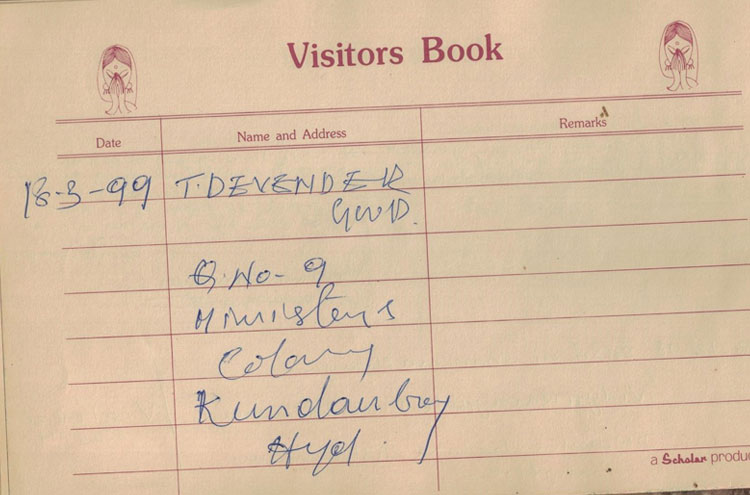 Visitors Book
Date
Name and Address
Remarks
18-3-99 T. DEVENDER
GOUD.
Q. No- 9
Ministers
Colony
Kundanbag
Hyd.
a Scholar produc